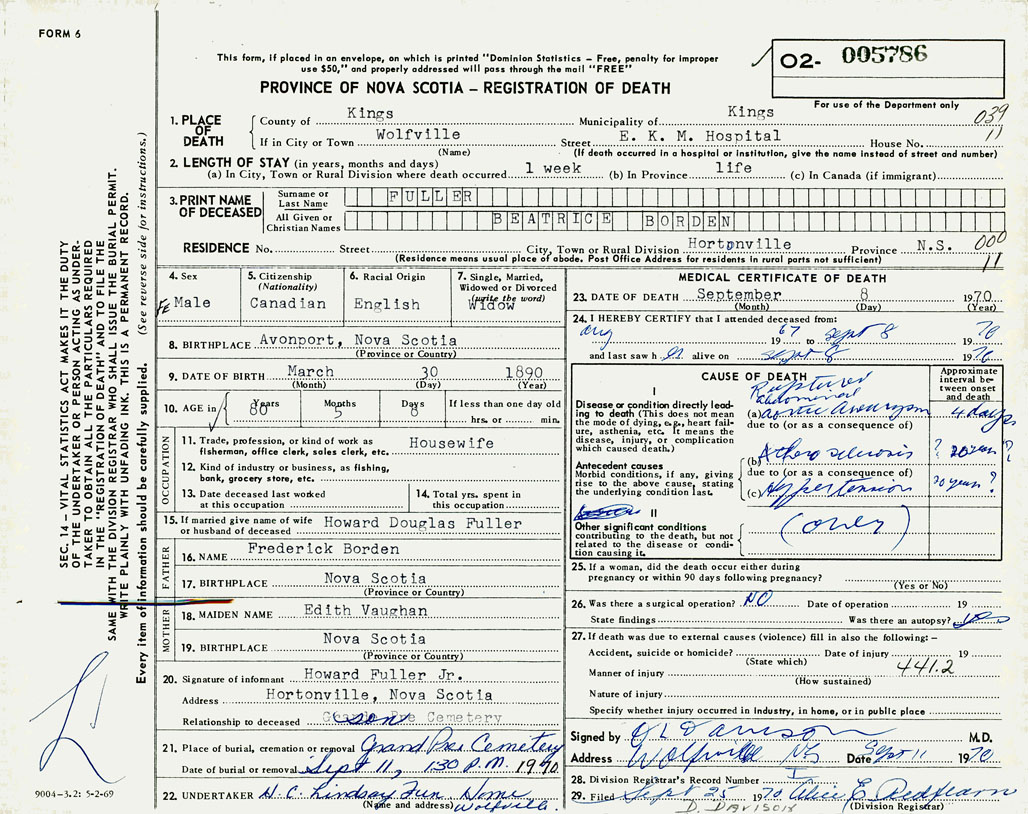 FORM 6
This form, if placed in an envelope, on which is printed "Dominion Statistics – Free, penalty for improper
use $50," and properly addressed will pass through the mail "FREE"
02- 005786
PROVINCE OF NOVA SCOTIA – REGISTRATION OF DEATH
For use of the Department only
039
11
1. PLACE OF DEATH
County of Kings Municipality of Kings
If in City or Town Wolfville Street E. K. M. Hospital House No.
(Name) (If death occurred in a hospital or institution, give the name instead of street and number)
2. LENGTH OF STAY (in years, months and days)
(a) In City, Town or Rural Division where death occurred 1 week (b) In Province life (c) In Canada (if immigrant)
3. PRINT NAME OF DECEASED
Surname or Last Name FULLER
All Given or Christian Names BEATRICE BORDEN
RESIDENCE No. Street City, Town or Rural Division Hortonville Province N.S. 000
(Residence means usual place of abode. Post Office Address for residents in rural parts not sufficient) 11
4. Sex
FeMale
5. Citizenship
(Nationality)
Canadian
6. Racial Origin
English
7. Single, Married,
Widowed or Divorced
(write the word)
Widow
8. BIRTHPLACE Avonport, Nova Scotia
(Province or Country)
9. DATE OF BIRTH March 30 1890
(Month) (Day) (Year)
10. AGE in Years Months Days If less than one day old
80 5 8 hrs. or min.
OCCUPATION
11. Trade, profession, or kind of work as
fisherman, office clerk, sales clerk, etc. Housewife
12. Kind of industry or business, as fishing,
bank, grocery store, etc.
13. Date deceased last worked
at this occupation
14. Total yrs. spent in
this occupation
15. If married give name of wife
or husband of deceased Howard Douglas Fuller
FATHER
16. NAME Frederick Borden
17. BIRTHPLACE Nova Scotia
(Province or Country)
MOTHER
18. MAIDEN NAME Edith Vaughan
19. BIRTHPLACE Nova Scotia
(Province or Country)
20. Signature of informant Howard Fuller Jr.
Address Hortonville, Nova Scotia
Relationship to deceased son Cemetery
21. Place of burial, cremation or removal Grand Pre Cemetery
Date of burial or removal Sept 11, 1:30 P.M. 1970
22. UNDERTAKER H. C. Lindsay Fun. Home
(Name and address) Wolfville.
MEDICAL CERTIFICATE OF DEATH
23. DATE OF DEATH September 8 1970
(Month) (Day) (Year)
24. I HEREBY CERTIFY that I attended deceased from:
Aug 1967 to Sept 8 1970
and last saw h er alive on Sept 8 1970
CAUSE OF DEATH
Approximate interval between onset and death
I
Disease or condition directly leading to death (This does not mean the mode of dying, e.g., heart failure, asthenia, etc. It means the disease, injury, or complication which caused death.)
Ruptured
abdominal
(a) aortic aneurysm 4 days
due to (or as a consequence of)
(b) Atherosclerosis ? 20 years ?
Antecedent causes
Morbid conditions, if any, giving rise to the above cause, stating the underlying condition last.
due to (or as a consequence of)
(c) Hypertension 20 years ?
II
Other significant conditions contributing to the death, but not related to the disease or condition causing it.
25. If a woman, did the death occur either during
pregnancy or within 90 days following pregnancy?
(Yes or No)
26. Was there a surgical operation? NO Date of operation 19
State findings Was there an autopsy? yes
27. If death was due to external causes (violence) fill in also the following: –
Accident, suicide or homicide? Date of injury 19
(State which)
Manner of injury 441.2
(How sustained)
Nature of injury
Specify whether injury occurred in industry, in home, or in public place
Signed by Davison M.D.
Address Wolfville NS Date Sept 11 1970
28. Division Registrar's Record Number
29. Filed Sept 25 1970 Alice E Redfearn
D. DAVISON (Division Registrar)
SEC. 14 – VITAL STATISTICS ACT MAKES IT THE DUTY
OF THE UNDERTAKER OR PERSON ACTING AS UNDER-
TAKER TO OBTAIN ALL THE PARTICULARS REQUIRED
IN THE "REGISTRATION OF DEATH" AND TO FILE THE
SAME WITH THE DIVISION REGISTRAR WHO SHALL ISSUE THE BURIAL PERMIT.
WRITE PLAINLY WITH UNFADING INK. THIS IS A PERMANENT RECORD.
Every item of information should be carefully supplied. (See reverse side for instructions.)
9004-3.2: 5-2-69